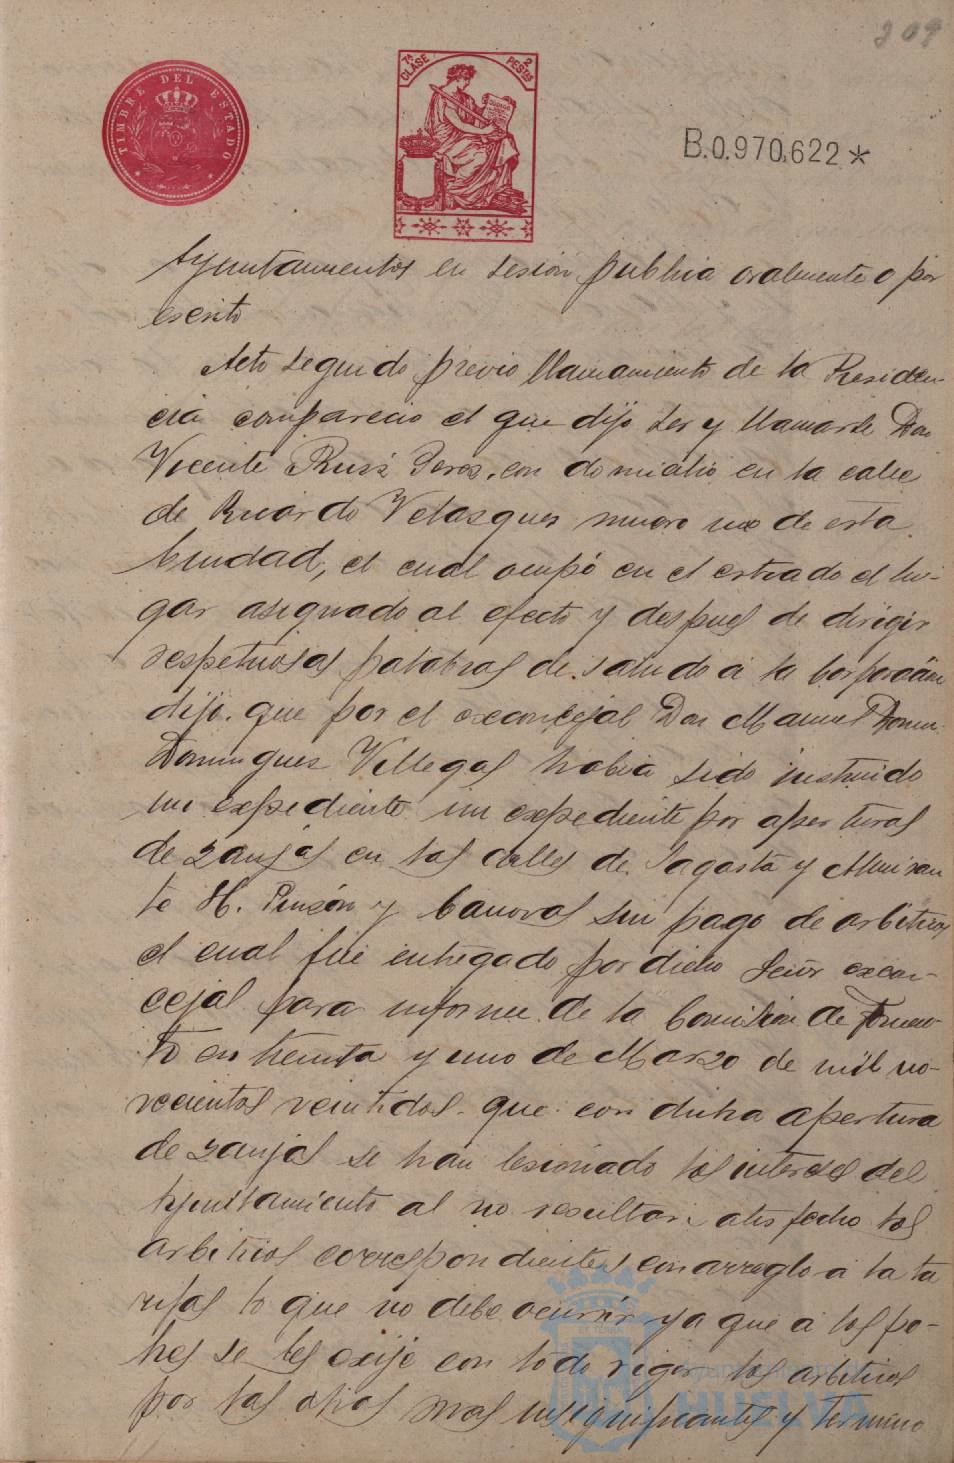 209
TIMBRE DEL ESTADO
7ª CLASE 2 PESTAS
B.0.970.622*
Ayuntamientos en sesion publica oralmente o por
escrito
Acto seguido previo llamamiento de la Presiden-
cia comparecio el que dijo ser y llamarse Don
Vicente Ruiz Peros, con domicilio en la calle
de Ricardo Velazquez numero uno de esta
Ciudad, el cual ocupó en el estrado el lu-
gar asignado al efecto y despues de dirigir
respetuosas palabras de saludo a la Corporación
dijo. que por el exconcejal Don Manuel Domin
Dominguez Villegas habia sido instruido
un expediente un expediente por aperturas
de zanjas en las calles de Sagasta y Almiran
te H. Pinzón y Canovas sin pago de arbitrios
el cual fue entregado por dicho Señor excon-
cejal para informe de la Comision de Fomen-
to en treinta y uno de Marzo de mil no-
vecientos veintidos. que con dicha apertura
de zanjas se han lesionado los intereses del
Ayuntamiento al no resultar satisfecho los
arbitrios correspondientes con arreglo a la ta
rifas lo que no debe ocurrir ya que a los po-
bres se les exije con todo rigor los arbitrios
por las obras mas insignificantes y termino
Ayuntamiento de
HUELVA